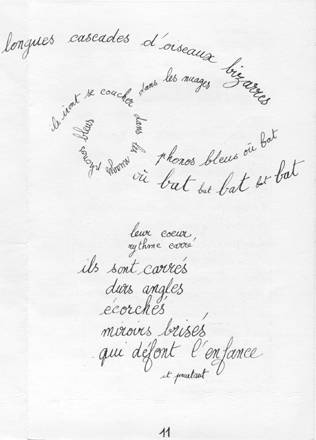 longues cascades d'oiseaux bizarres
se coucher dans les nuages
dans les nuages
phonos bleus
phonos bleus où bat
où bat bat bat bat bat
leur coeur,
rythme carré,
ils sont carrés
durs angles
écorchés
miroirs brisés
qui défont l'enfance
et pourtant
11